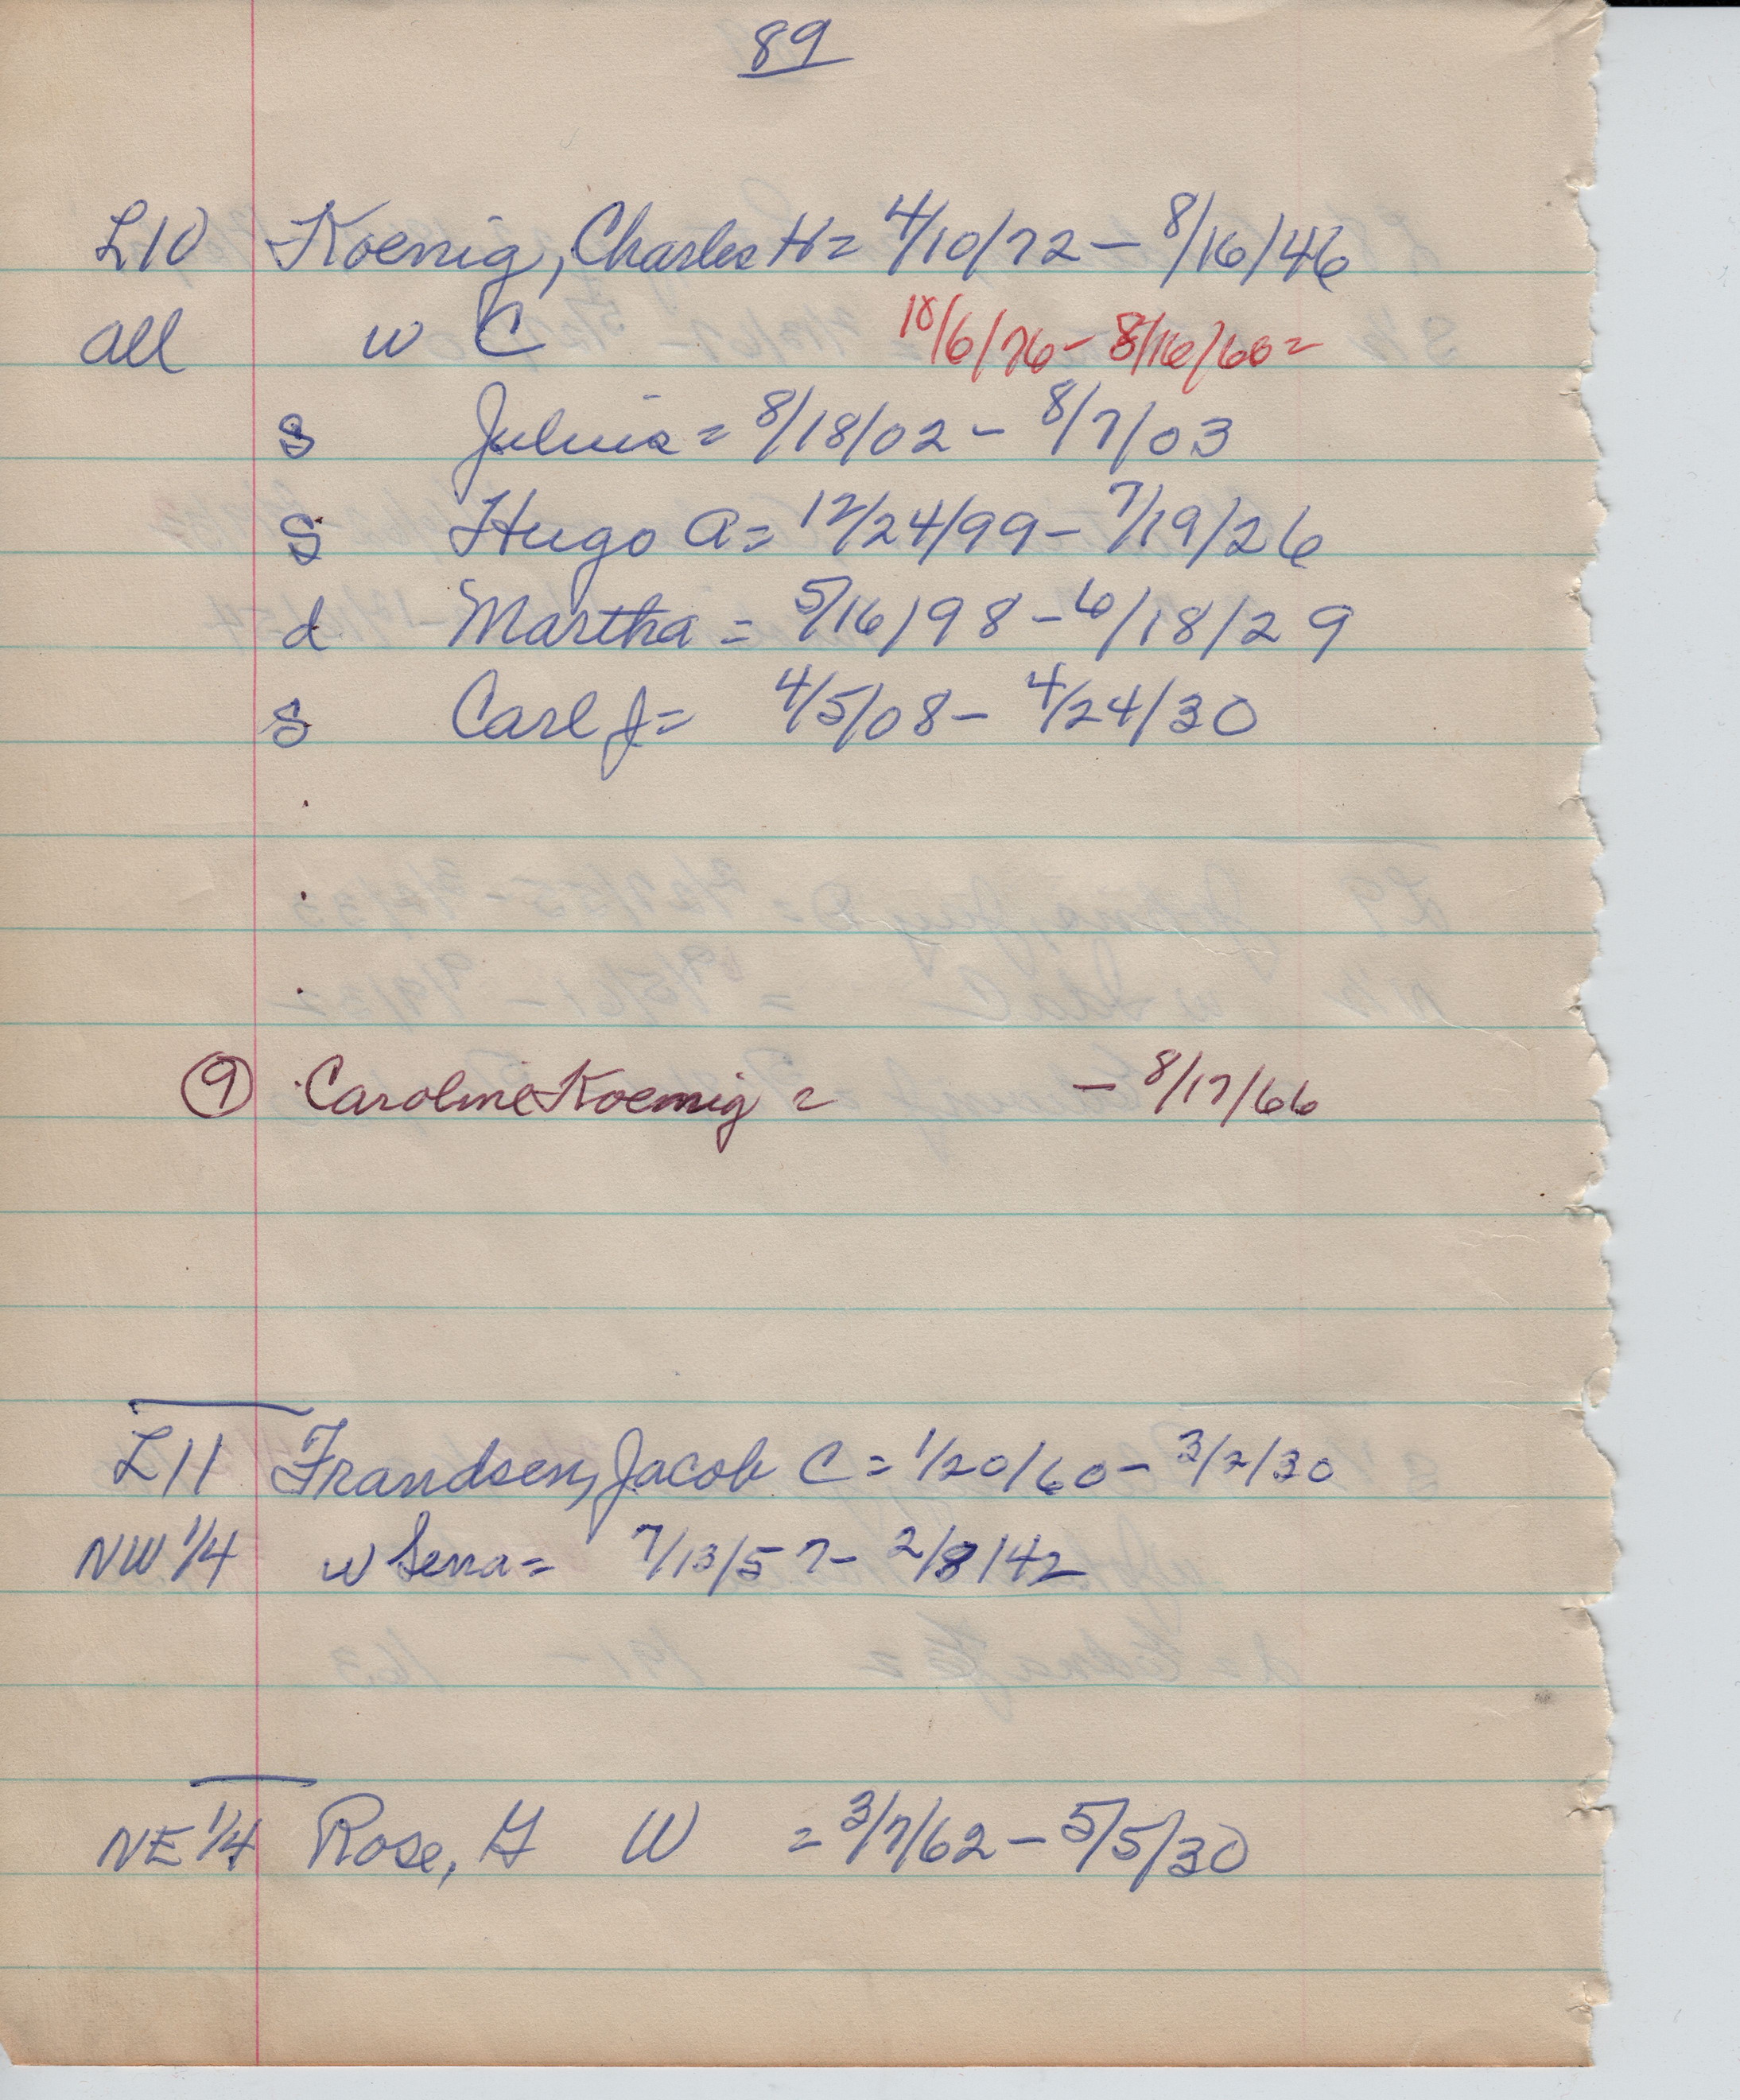 89
L10 Koenig, Charles H = 4/10/72 - 8/16/46
all w C 10/6/76 - 8/16/60 =
s Julius = 8/18/02 - 8/7/03
S Hugo A = 12/24/99 - 7/19/26
d Martha = 5/16/98 - 6/18/29
s Carl J = 4/5/08 - 4/24/30
9 Caroline Koenig = - 8/17/66
L11 Frandsen, Jacob C = 1/20/60 - 3/2/30
NW 1/4 w Sena = 7/13/57 - 2/8/42
NE 1/4 Rose, G W = 3/7/62 - 5/5/30